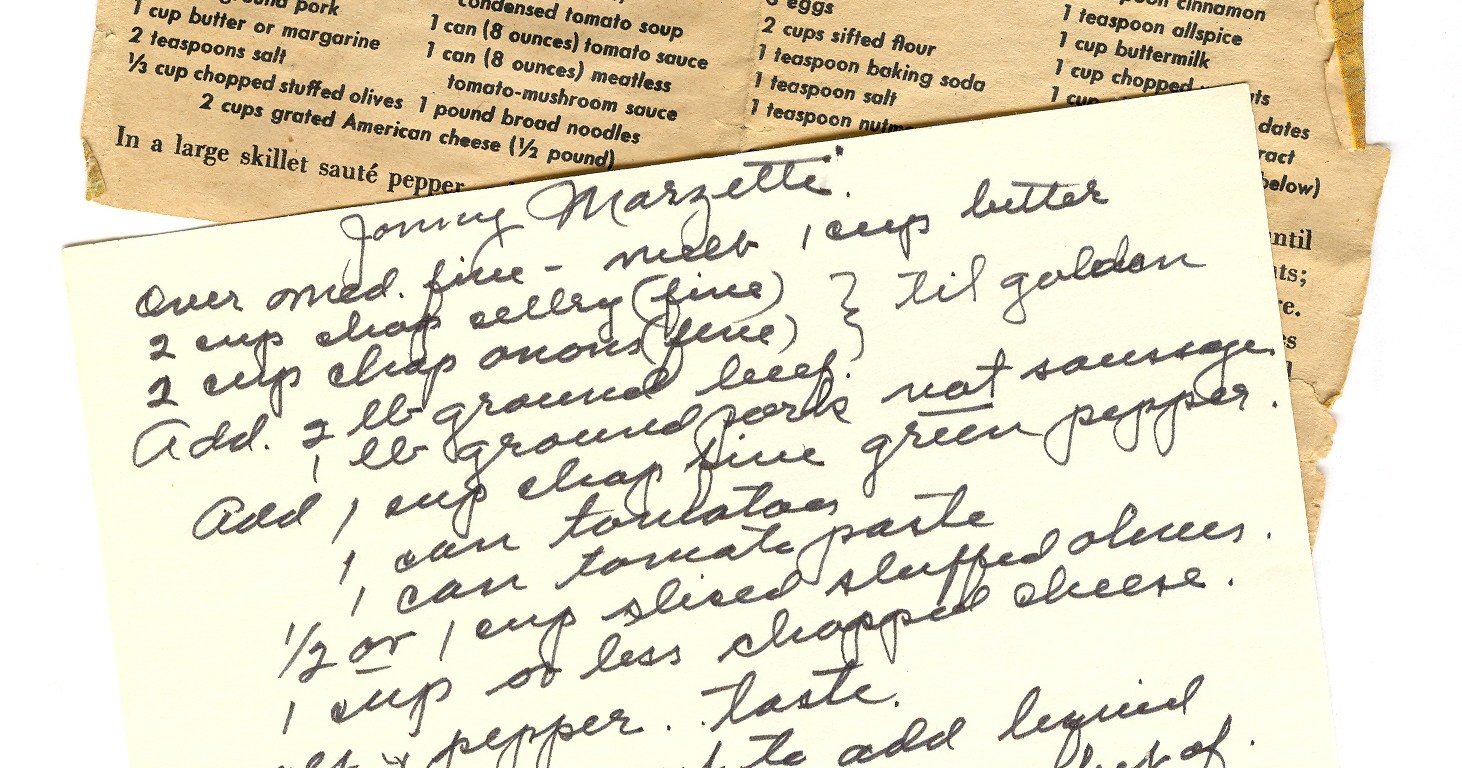 ground pork
1 cup butter or margarine
2 teaspoons salt
⅓ cup chopped stuffed olives
2 cups grated American cheese (½ pound)
In a large skillet sauté pepper
condensed tomato soup
1 can (8 ounces) tomato sauce
1 can (8 ounces) meatless
tomato-mushroom sauce
1 pound broad noodles
eggs
2 cups sifted flour
1 teaspoon baking soda
1 teaspoon salt
1 teaspoon
cinnamon
1 teaspoon allspice
1 cup buttermilk
1 cup chopped
1 cup
dates
below)
Jonny Marzetti
Over med. fire - melt 1 cup butter
2 cup chop cellry (fine) } 'til golden
2 cup chop onons (fine) }
Add. 2 lb ground beef.
1 lb ground pork not saussage.
Add 1 cup chop fine green pepper.
1 can tomatoes
1 can tomato paste
1/2 or 1 cup sliced stuffed olives.
1 cup or less chopped cheese.
pepper. . taste.
to add liquid
of.